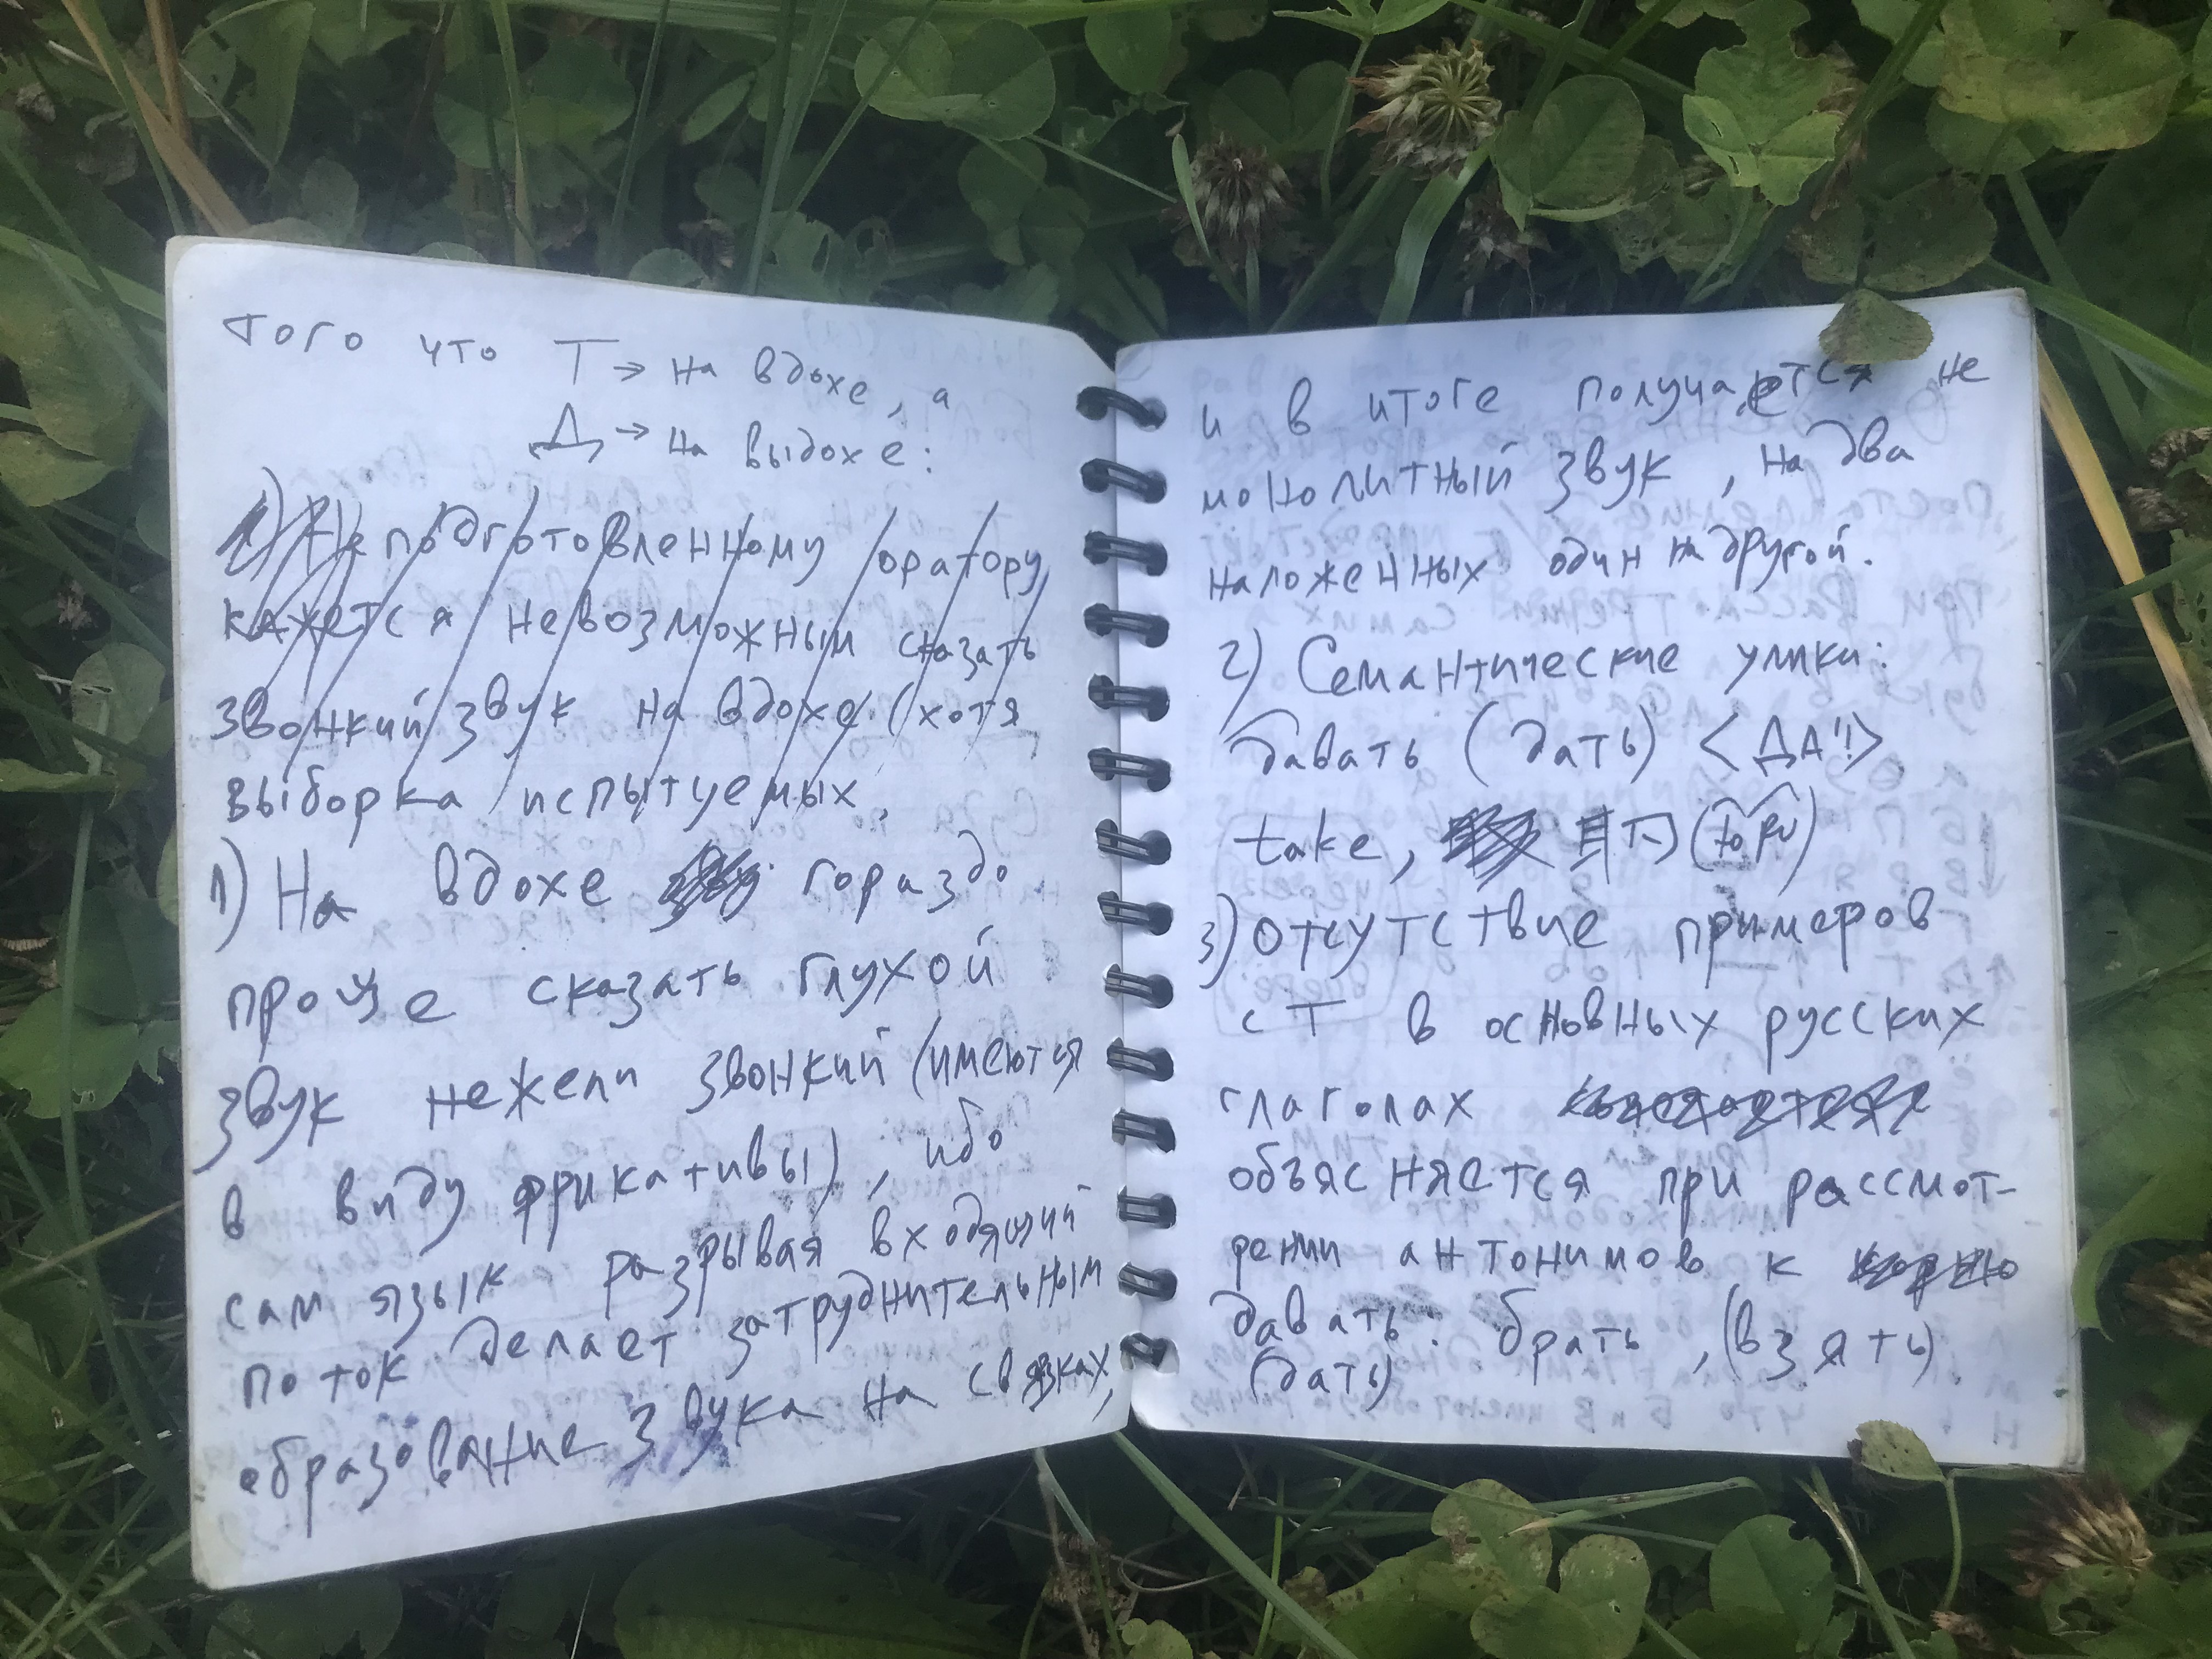 того что Т → на вдохе, а
Д → на выдохе:
1) Не подготовленному оратору
кажется невозможным сказать
звонкий звук на вдохе (хотя
выборка испытуемых
1) На вдохе гораздо
проще сказать глухой
звук нежели звонкий (имеются
в виду фрикативы), ибо
сам язык разрывая входящий
поток делает затруднительным
образование звука на связках,
и в итоге получается не
монолитный звук, на два
наложенных один на другой.
2) Семантические улики:
Давать (дать) < ДА!>
take, 取 (tori)
3) Отсутствие примеров
с Т в основных русских
глаголах
объясняется при рассмот-
рении антонимов к
давать: брать, (взять).
(дать)